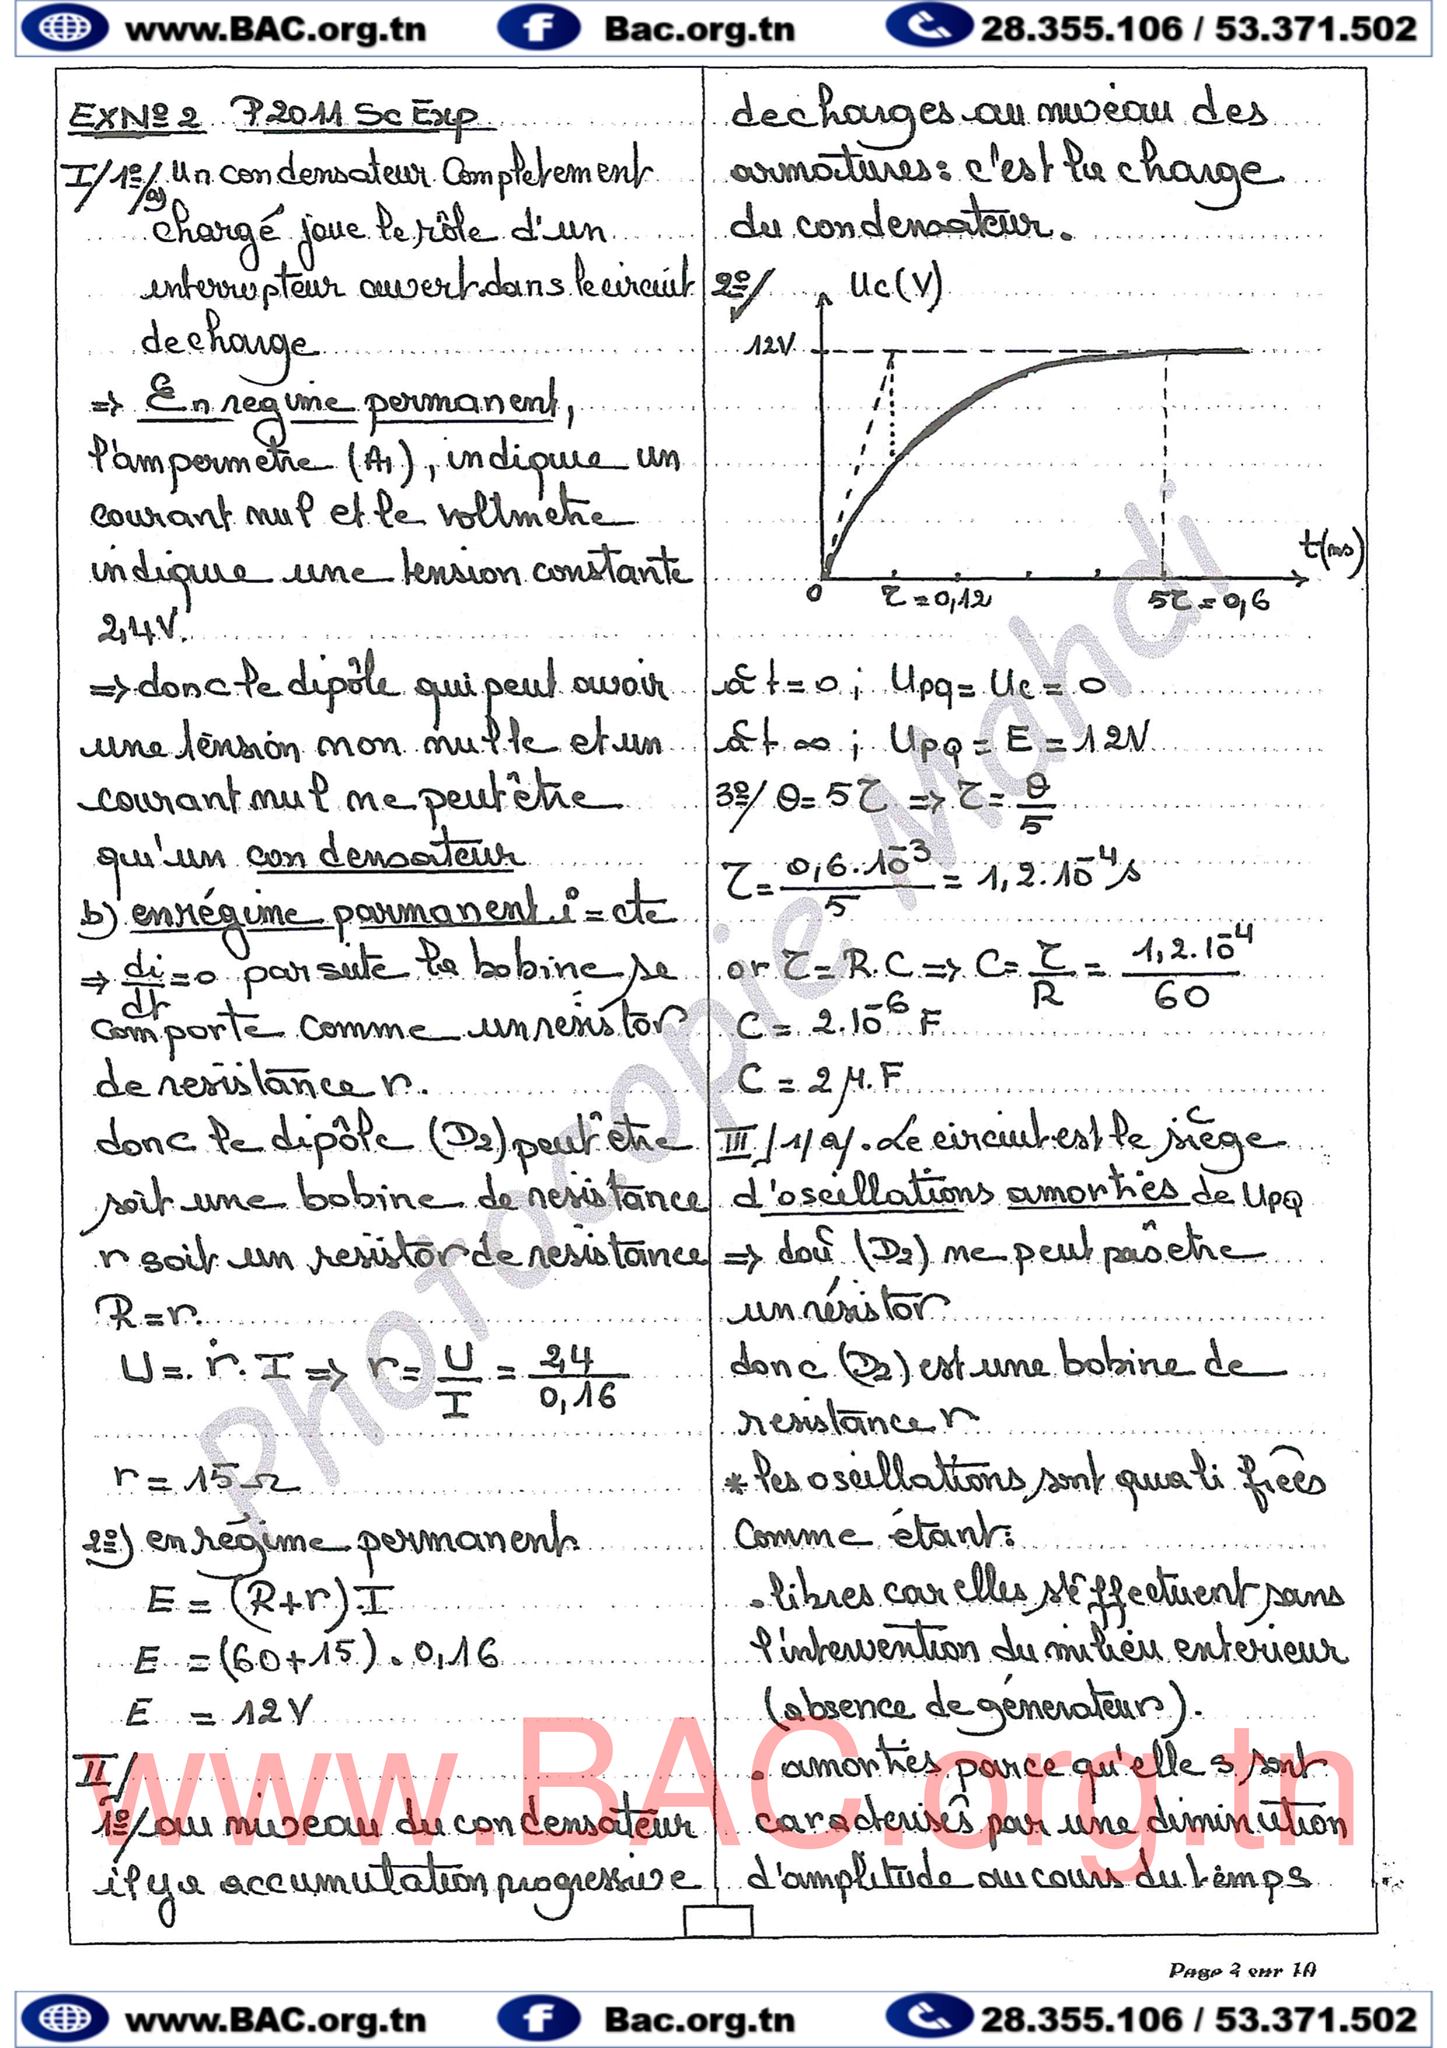 www.BAC.org.tn Bac.org.tn 28.355.106 / 53.371.502
Ex Nº 2 P2011 Sc Exp
I/1º/a) Un condensateur Completement
chargé joue le rôle d'un
interrupteur ouvert dans le circuit
de charge
⇒ En regime permanent,
l'ampermetre (A1), indique un
courant nul et le voltmetre
indique une tension constante
2,4V.
⇒ donc le dipôle qui peut avoir
une tension non nulle et un
courant nul ne peut être
qu'un condensateur
b) en régime parmanent i = cte
⇒ di/dt = 0 par suite la bobine se
comporte comme un resistor
de resistance r.
donc le dipôle (D2) peut être
soit une bobine de resistance
r soit un resistor de resistance
R = r.
U = r . I ⇒ r = U/I = 2,4/0,16
r = 15 Ω
2º) en régime permanent
E = (R+r).I
E = (60+15) . 0,16
E = 12 V
II/
1º/ au niveau du condensateur
il y a accumulation progressive
de charges au niveau des
armatures : c'est la charge
du condensateur.
2º/ Uc (V)
12V
t(ms)
0 τ = 0,12 5τ = 0,6
à t = 0 ; UPQ = Uc = 0
à t ∞ ; UPQ = E = 12V
3º/ θ = 5τ ⇒ τ = θ/5
τ = 0,6.10⁻³/5 = 1,2.10⁻⁴ s
or τ = R.C ⇒ C = τ/R = 1,2.10⁻⁴/60
C = 2.10⁻⁶ F
C = 2 μ.F
III/1/a/. Le circuit est le siège
d'oscillations amorties de UPQ
⇒ doù (D2) ne peut pas être
un résistor
donc (D2) est une bobine de
resistance r
* les oscillations sont qualifiées
Comme étant :
. libres car elles s'éffectuent sans
l'intervention du milieu exterieur
(absence de génerateur).
. amorties parce qu'elle s sont
caracterisés par une diminution
d'amplitude au cours du temps
Photocopie Mahdi
www.BAC.org.tn
Page 2 sur 10
www.BAC.org.tn Bac.org.tn 28.355.106 / 53.371.502